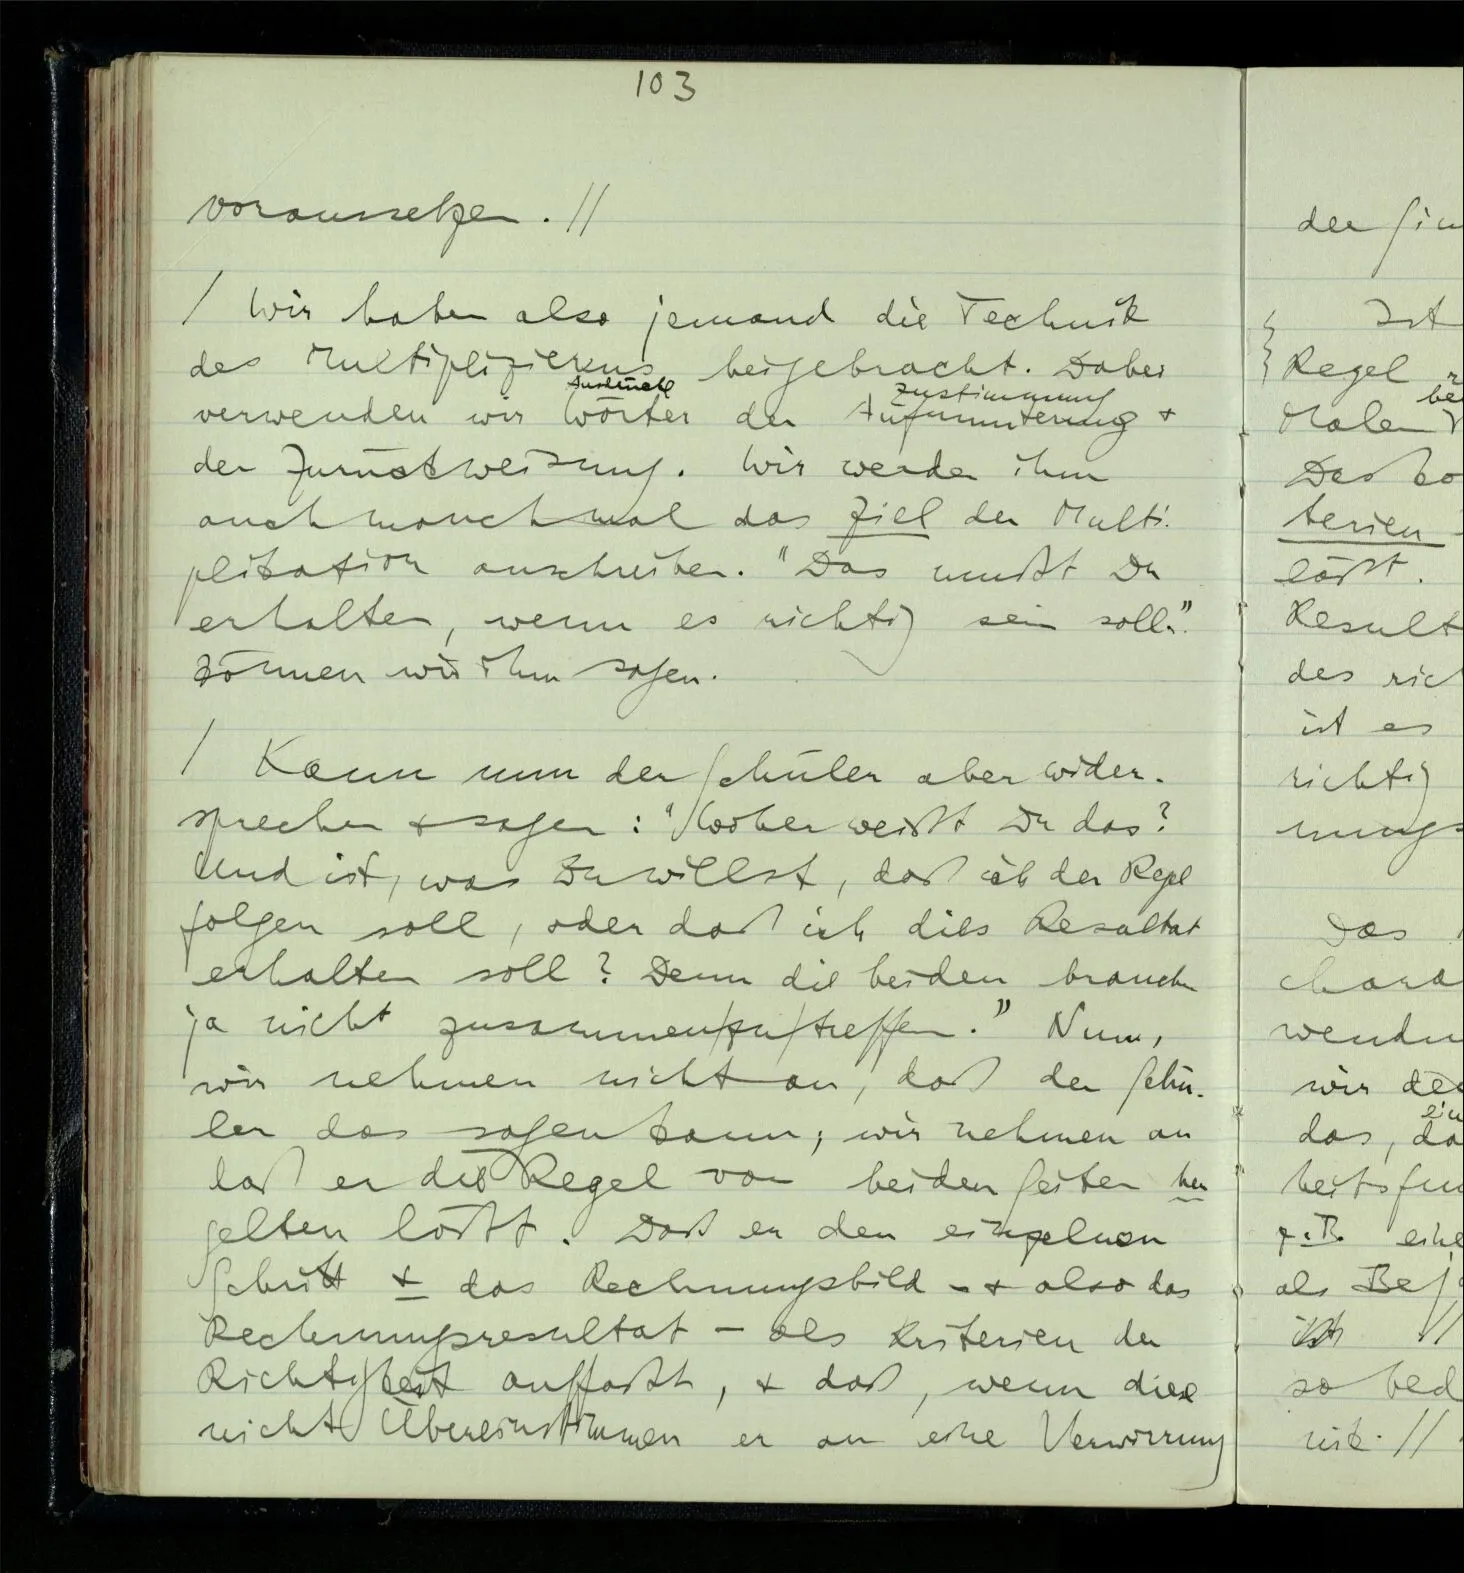 103
voraussetzen. //
/ Wir haben also jemand die Technik
des Multiplizierens beigebracht. Dabei
Ausdrücke Zustimmung
verwenden wir Wörter der Aufmunterung +
der Zurückweisung. Wir werden ihm
auch manchmal das Ziel der Multi-
plikation anschreiben. "Das mußt Du
erhalten, wenn es richtig sein soll."
können wir ihm sagen.
/ Kann nun der Schüler aber wider-
sprechen + sagen: "Woher weißt Du das?
Und ist, was Du willst, daß ich der Regel
folgen soll, oder daß ich dies Resultat
erhalten soll? Denn die beiden brauchen
ja nicht zusammen/zu/treffen." Nun,
wir nehmen nicht an, daß der Schü-
ler das sagen kann; wir nehmen an
daß er die Regel von beiden Seiten her
gelten läßt. Daß er den einzelnen
Schritt + das Rechnungsbild – + also das
Rechnungsresultat – als Kriterien der
Richtigkeit auffaßt, + daß, wenn diese
nicht übereinstimmen er an eine Verwirrung
der
Ist
Regel
Malen
Das
terien
läßt.
Result
des
ist es
richtig
nungs
Das
chara
wir
das,
heitsfun
z.B. eine
als Bej
ist //
so bed
nik. //